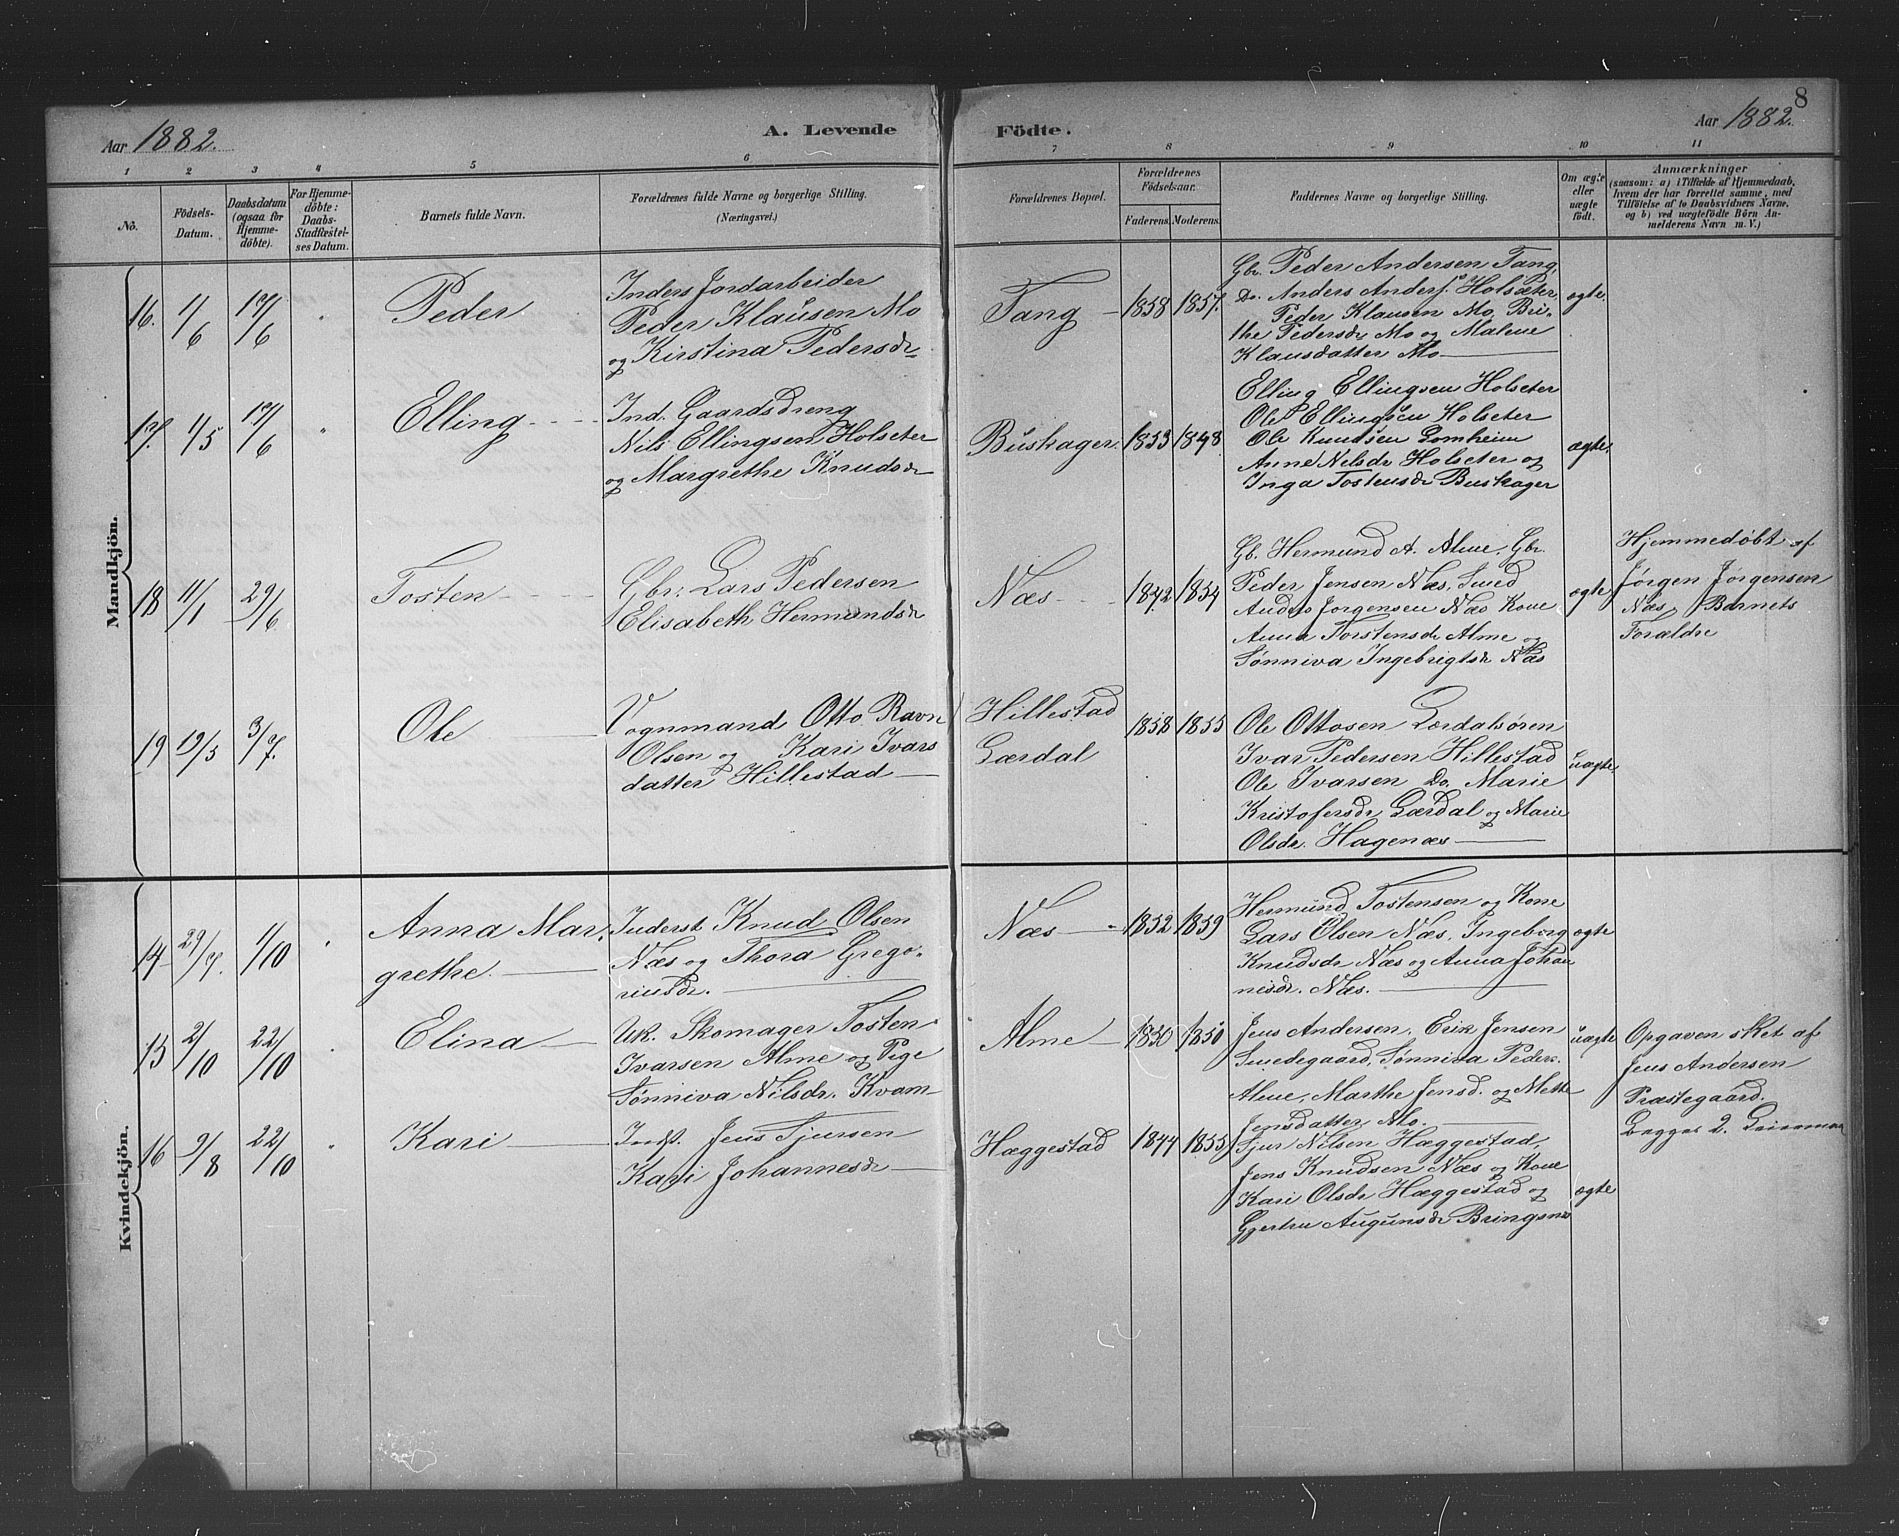 Aar 1882.
A. Levende Födte.
8
Aar 1882.
1 2 3 4 5 6 7 8 9 10 11
No.
Födsels-Datum.
Daabsdatum (ogsaa for Hjemme-döbte).
For Hjemme-döbte: Daabs-Stadfæstel-ses Datum.
Barnets fulde Navn.
Forældrenes fulde Navne og borgerlige Stilling.
(Næringsvei.)
Forældrenes Bopæl.
Forældrenes Födselsaar.
Faderens. Moderens.
Faddernes Navne og borgerlige Stilling.
Om ægte eller uægte födt.
Anmærkninger
(saasom: a) i Tilfælde af Hjemmedaab,
hvem der har forrettet samme, med
Tilföielse af to Daabsvidners Navne,
og b) ved uægtefödte Börn An-
melderens Navn m. V.)
Mandkjön.
16. 1/6 17/6 " Peder
Inders Jordarbeider
Peder Klausen Mo
og Kirstina Pedersdr
Tang 1858 1857.
Gbr. Peder Andersen Tang,
Do. Anders Anders. Holsæter,
Peder Klausen Mo, Bri-
the Pedersdr Mo og Malene
Klausdatter Mo
ægte
17. 1/5 17/6 " Elling
Ind. Gaardsdreng
Nils Ellingsen Holseter
og Margrethe Knudsdr
Buskager. 1853 1848
Elling Ellingsen Holseter
Ole P Ellingsen Holseter
Ole Knudsen Lomheim
Anne Nelsdr Holseter og
Inga Tostensdr Buskager
ægte.
18 11/1 29/6 Tosten
Gbr. Lars Pedersen
Elisabeth Hermundsdr
Næs 1842 1854
Gb. Hermund A. Alme, Gbr.
Peder Jensen Næs, Smed
Anders Jørgensen Næs Kone
Anna Torstensdr Alme og
Sønniva Ingebrigtsdr Næs
ægte
Hjemmedøbt af
Jørgen Jørgensen
Næs, Barnets
Forældre
19 19/5 3/7. Ole
Vognmand Otto Ravn
Olsen og Kari Ivars
datter Hillestad
Hillestad
Lærdal
1858 1855
Ole Ottosen Lærdalsøren
Ivar Pedersen Hillestad
Ole Ivarsen Do. Marie
Kristofersdr Lærdal og Marie
Olsdr. Hagenæs
uægte
Kvindekjön.
14 29/7. 1/10 " Anna Mar-
grethe.
Inderst Knud Olsen
Næs og Thora Grego-
riusdr.
Næs 1852 1859
Hermund Tostensen og Kone
Lars Olsen Næs, Ingeborg
Knudsdr Næs og Anna Johan
nesdr. Næs.
ægte
15 2/10 22/10 Elina
Uk. Skomager Tosten
Ivarsen Alme og Pige
Sønniva Nilsdr. Kvam
Alme 1850 1850
Jens Andersen, Erik Jensen
Smedegaard, Sønniva Peders.
Alme, Marthe Jensd. og Mette
Jensdatter Mo.
uægte
Opgaven sket af
Jens Andersen
Præstegaard.
Begges 2. Leiermaal
16 9/8 22/10 " Kari
Indst. Jens Sjursen
Kari Johannesdr
Hæggestad 1844 1855
Sjur Nilsen Hæggestad,
Jens Knudsen Næs og Kone
Kari Olsdr Hæggestad og
Gjertru Augunsdr Bringsnæs
ægte